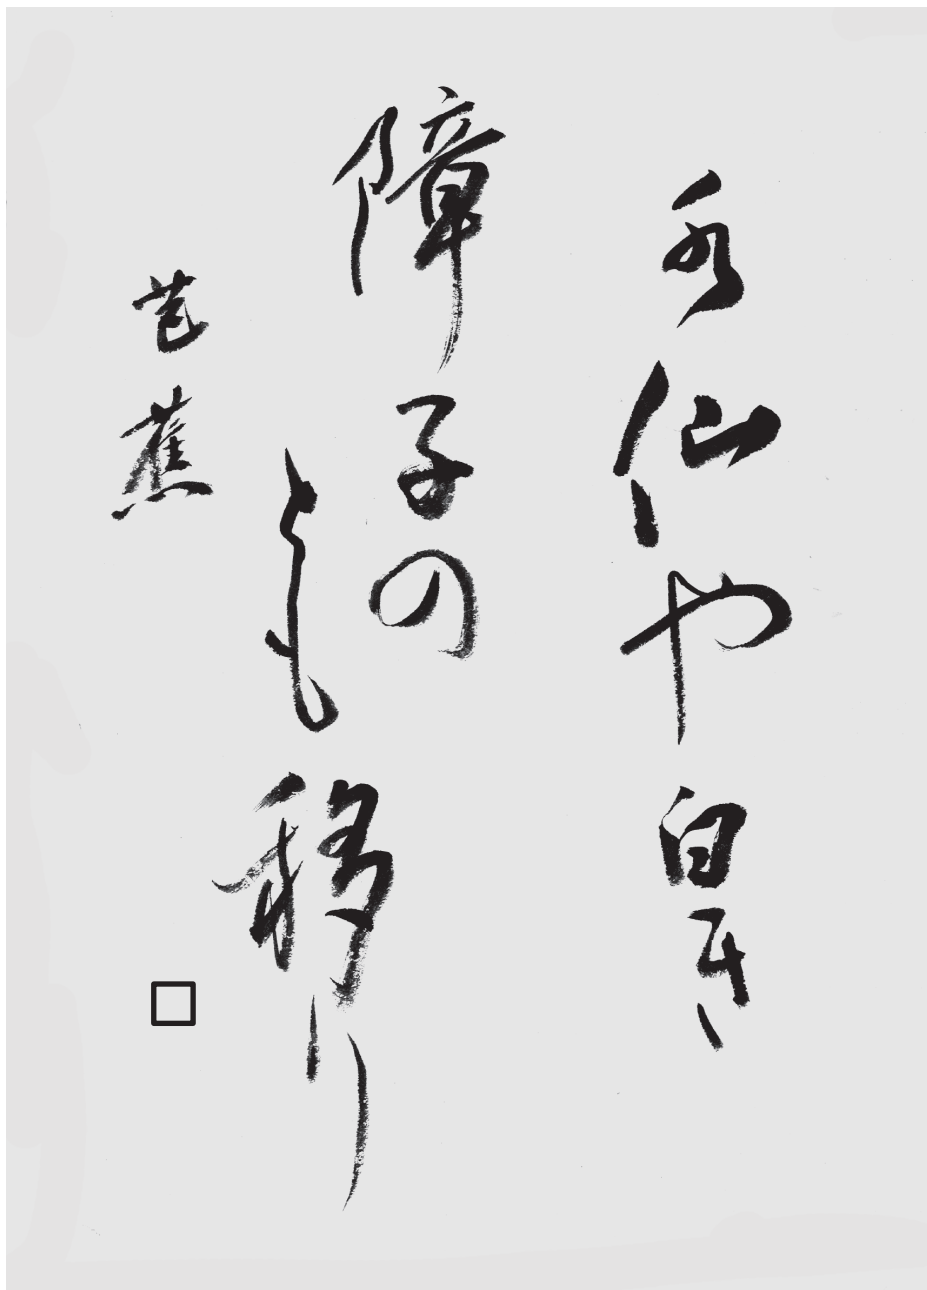 水仙や白き
障子の
とも移り
芭蕉